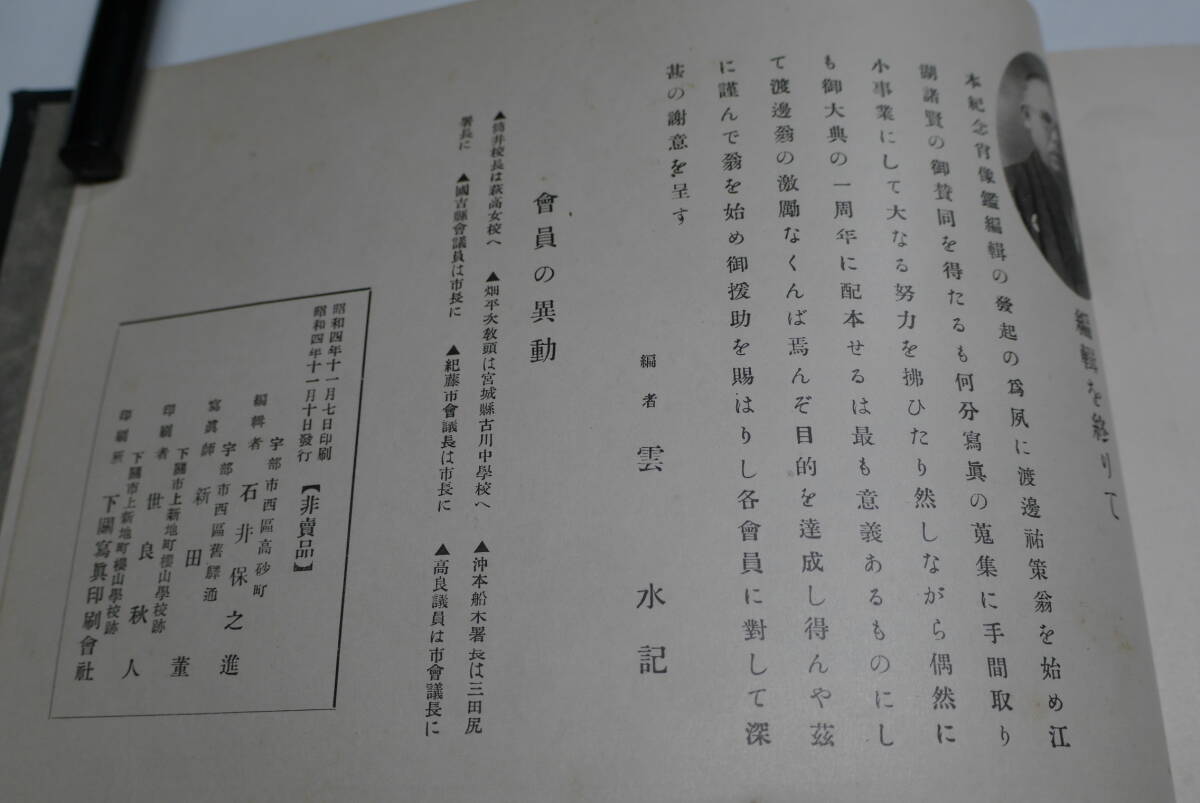 編輯を終りて
本紀念肖像鑑編輯の發起の爲夙に渡邊祐策翁を始め江
湖諸賢の御賛同を得たるも何分寫眞の蒐集に手間取り
小事業にして大なる努力を拂ひたり然しながら偶然に
も御大典の一周年に配本せるは最も意義あるものにし
て渡邊翁の激勵なくんば焉んぞ目的を達成し得んや茲
に謹んで翁を始め御援助を賜はりし各會員に對して深
甚の謝意を呈す
編者 雲水記
會員の異動
▲筒井校長は萩高女校へ ▲畑平次敎頭は宮城縣古川中學校へ ▲沖本船木署長は三田尻
署長に ▲國吉縣會議員は市長に ▲紀藤市會議長は市長に ▲高良議員は市會議長に
昭和四年十一月七日印刷
昭和四年十一月十日發行
【非賣品】
宇部市西區高砂町
編輯者 石井保之進
宇部市西區舊驛通
寫眞師 新田董
下關市上新地町櫻山學校跡
印刷者 世良秋人
下關市上新地町櫻山學校跡
印刷所 下關寫眞印刷會社